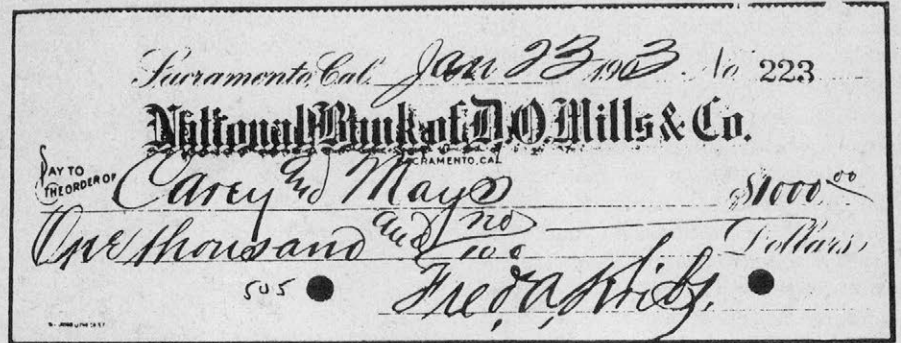 Sacramento, Cal. Jan 23 1903 No 223
National Bank of D.O. Mills & Co.
SACRAMENTO, CAL
PAY TO THE ORDER OF Carey and Mays $1000 00
One thousand and no/100 Dollars
505 Fred. A.